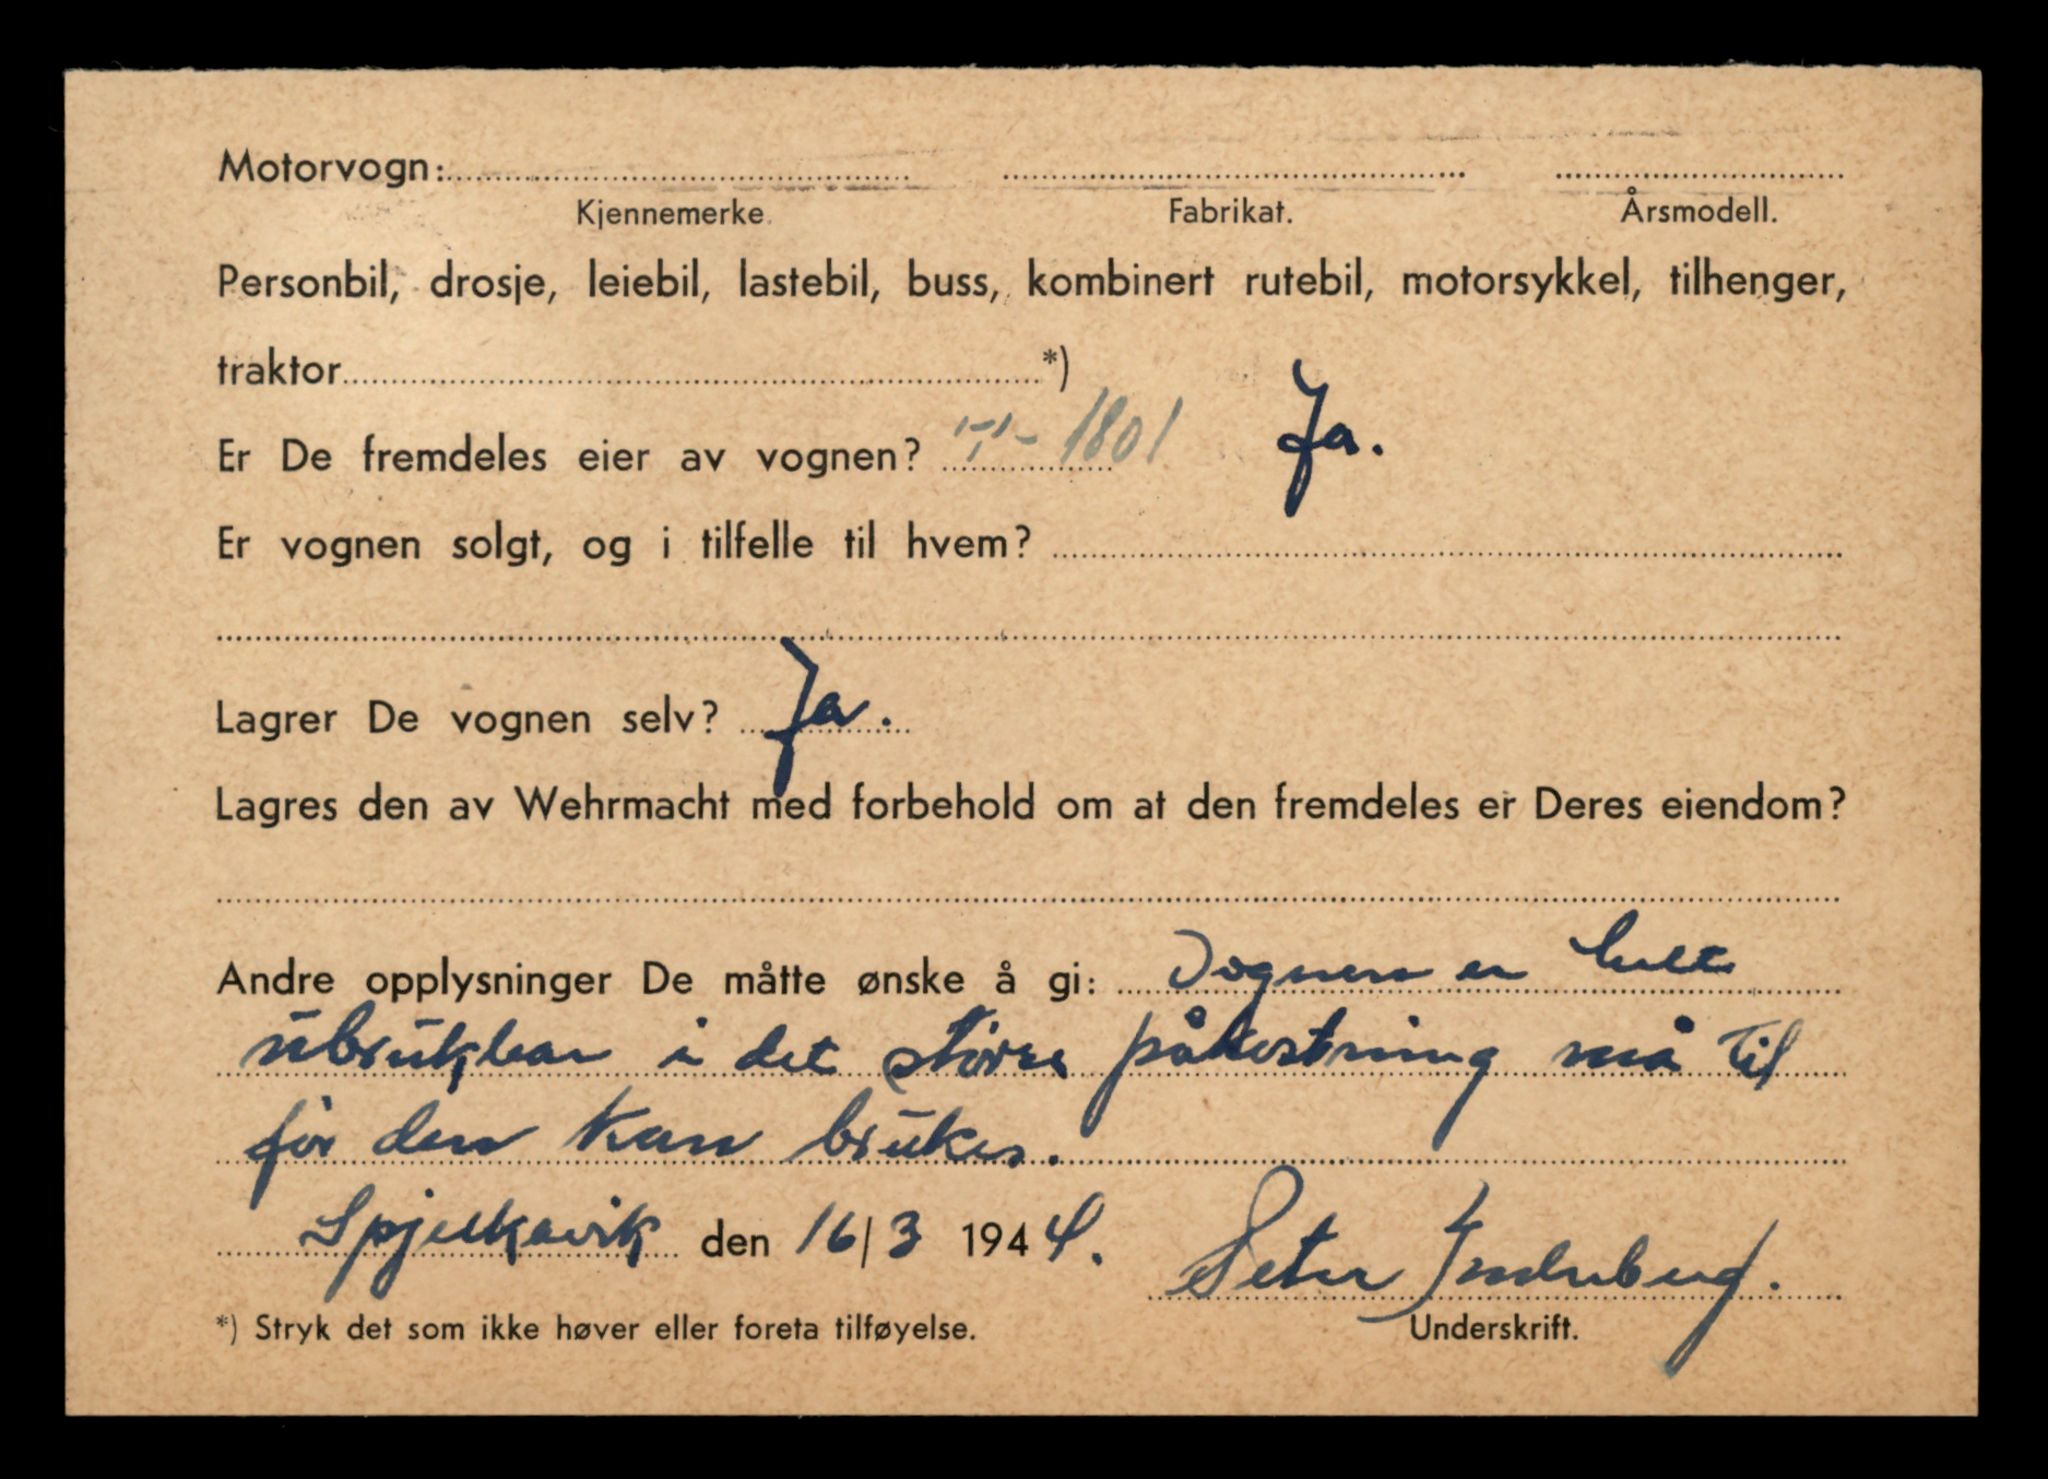 Motorvogn:
Kjennemerke. Fabrikat. Årsmodell.
Personbil, drosje, leiebil, lastebil, buss, kombinert rutebil, motorsykkel, tilhenger,
traktor *)
Er De fremdeles eier av vognen? 1801 Ja.
Er vognen solgt, og i tilfelle til hvem?
Lagrer De vognen selv? Ja.
Lagres den av Wehrmacht med forbehold om at den fremdeles er Deres eiendom?
Andre opplysninger De måtte ønske å gi: Vognen er helt
ubrukbar i det større påkostning må til
før den kan brukes.
Spjelkavik den 16/3 1944.
Peter
*) Stryk det som ikke høver eller foreta tilføyelse. Underskrift.